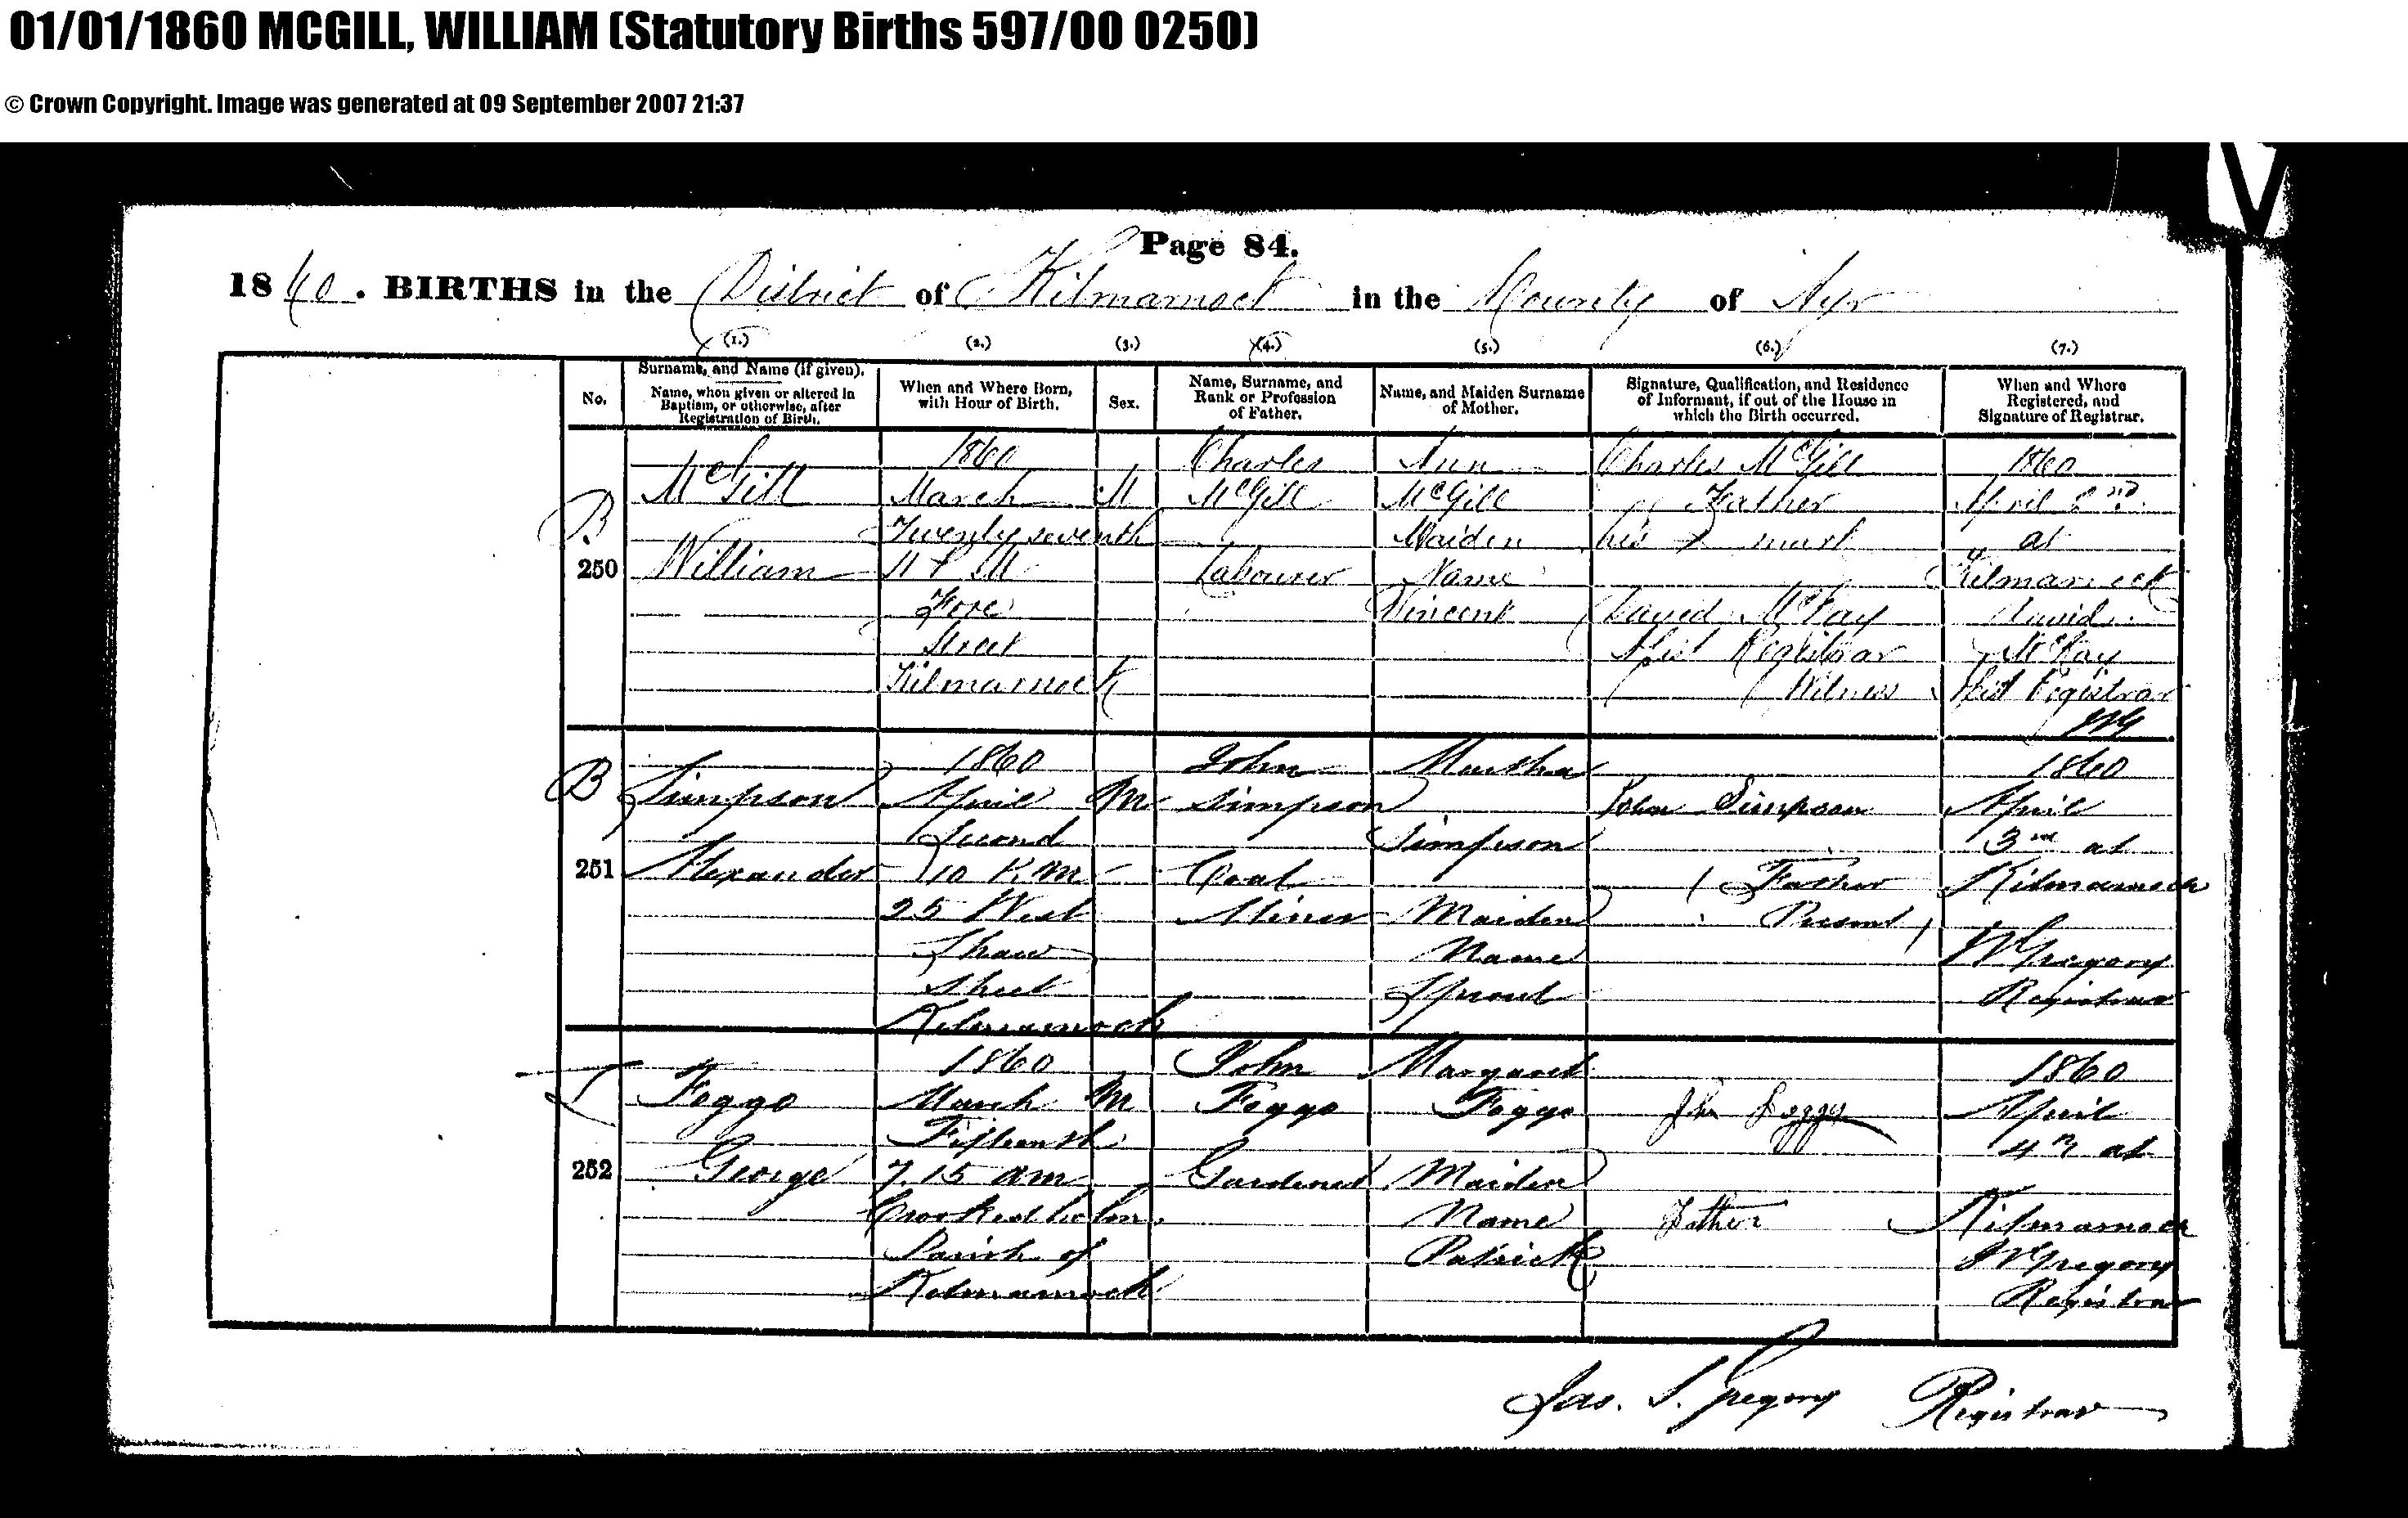 01/01/1860 MCGILL, WILLIAM (Statutory Births 597/00 0250)
© Crown Copyright. Image was generated at 09 September 2007 21:37
Page 84.
1860. BIRTHS in the District of Kilmarnock in the County of Ayr
(1.) (2.) (3.) (4.) (5.) (6.) (7.)
No.
Surname, and Name (if given).
Name, when given or altered in
Baptism, or otherwise, after
Registration of Birth.
When and Where Born,
with Hour of Birth.
Sex.
Name, Surname, and
Rank or Profession
of Father.
Name, and Maiden Surname
of Mother.
Signature, Qualification, and Residence
of Informant, if out of the House in
which the Birth occurred.
When and Where
Registered, and
Signature of Registrar.
B
250
McGill
William
1860
March
Twenty seventh
11 P M
Fore
Street
Kilmarnock
M
Charles
McGill
Labourer
Ann
McGill
Maiden
Name
Vincent
Charles McGill
Father
his x mark
David McKay
Asist Registrar
Witness
1860
April 2nd
at
Kilmarnock
David
McKay
Asist Registrar
B
251
Simpson
Alexander
1860
April
Second
25 West
Shaw
Street
Kilmarnock
M
John
Simpson
Coal
Miner
Martha
Simpson
Maiden
Name
Sproul
John Simpson
Father
Present
1860
April
3rd at
Kilmarnock
Gregory
Registrar
252
Foggo
George
1860
March
Fifteenth
7.15 am
Crookedholm
Parish of
Kilmarnock
M
John
Foggo
Gardener
Margaret
Foggo
Maiden
Name
Patrick
John Foggo
Father
1860
April
4th at
Kilmarnock
Gregory
Registrar
Jas. S. Gregory Registrar